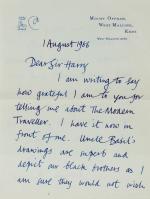 MOUNT OFFHAM,
WEST MALLING,
KENT
1 August 1986
Dear Sir Harry
I am writing to say
how grateful I am to you for
telling me about The Modern
Traveller. I have it now in
front of me. Uncle Basil's
drawings are superb and
depict our black brothers as I
am sure they would not wish